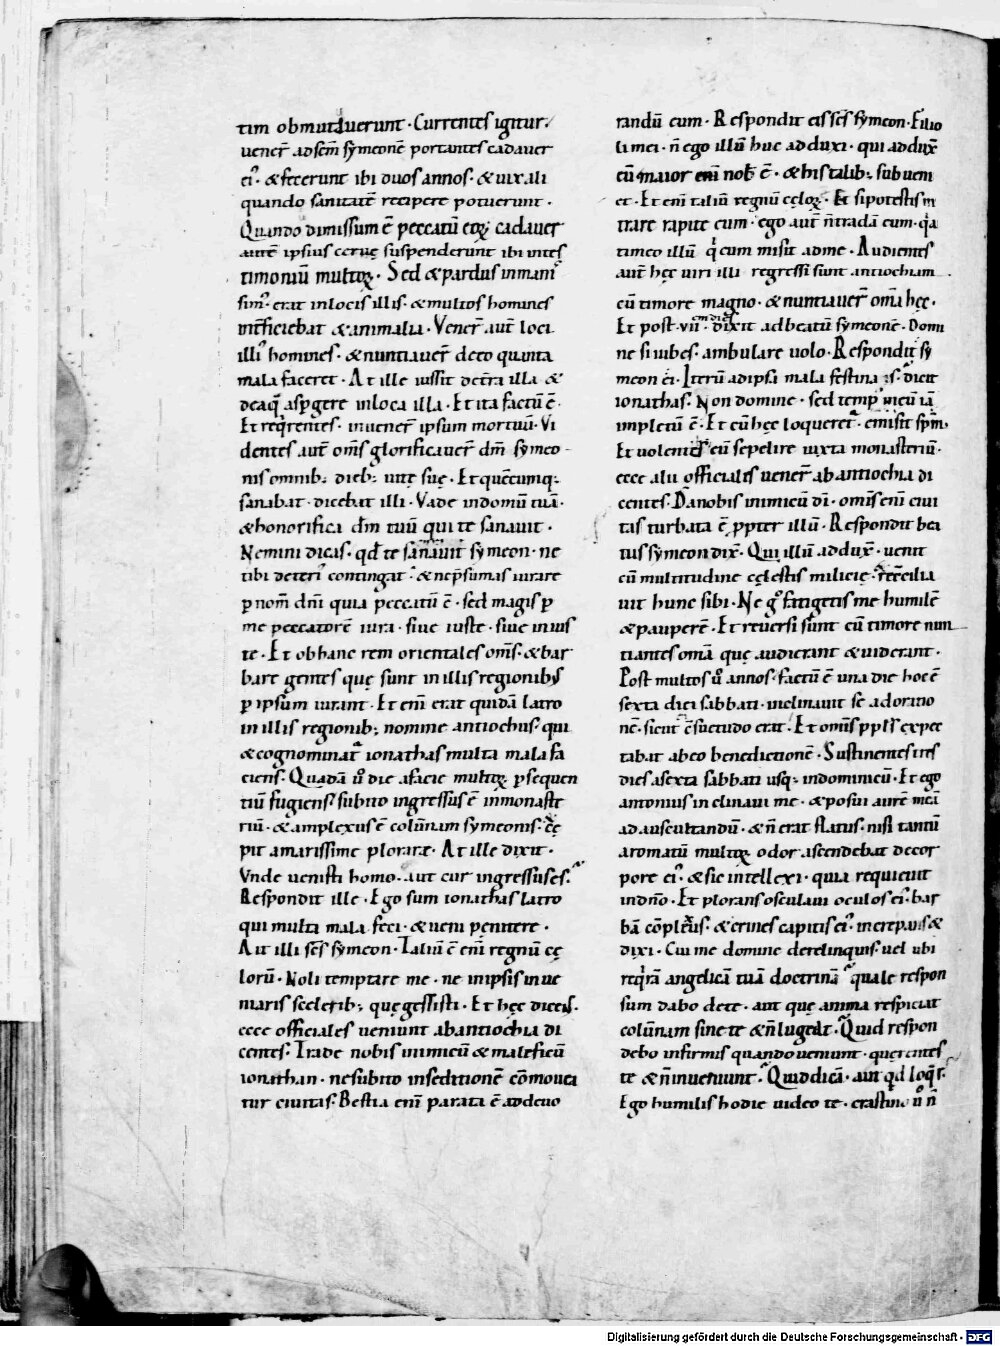 tim obmutauerunt· Currentes igitur·
uener̄ ad scm̄ symeonē portantes cadauer
ei᾽· & fecerunt ibi duos annos· & uix ali
quando sanitatē recipere potuerunt·
Quando dimissum ē peccatū eoꝝ cadauer
autē ipsius ceruę suspenderunt ibi in tes
timonium multoꝝ· Sed & pardus inmanis
sim᾽· erat in locis illis· & multos homines
int̄ficiebat & animalia· Vener̄ aut̄ loci
illi᾽ homines· & nuntiauer̄ deeo quanta
mala faceret· At ille iussit det̄ra illa &
deaq̄ asꝑgere in loca illa· Et ita factū ē·
Et reqͥrentes· inuener̄ ipsum mortuū· Vi
dentes aut̄ oms̄ glorificauer̄ dm̄ symeo-
nis omnib; dieb; uitę suę· Et quēcumq;
sanabat· dicebat illi· Vade in domū tuā·
& honorifica dm̄ tuū qui te sanauit·
Nemini dicas· qd̄ te sanauit symeon· ne
tibi deteri᾽ contingat· & ne p̄sumas iurare
ꝑ nom̄ dni̅ quia peccatū ē· sed magis ꝑ
me peccatorē iura· siue iuste· siue inius
te· Et ob hanc rem orientales oms̄· & bar
barę gentes quę sunt in illis regionibus
ꝑ ipsum iurant· Et eni̅ erat quidā latro
in illis regionib; nomine antiochus· qui
& cognominat᾽ ionathas multa mala fa
ciens· Quadā u᾽ die a facie multoꝝ ꝑsequen
tiū fugiens· subito ingressus ē in monaste
riū· & amplexus ē colūnam symeonis· cę
pit amarissime plorare· At ille dixit·
Vnde uenisti homo· aut cur ingressus es·
Respondit ille· Ego sum ionathas latro
qui multa mala feci· & ueni penitere·
Ait illi scs̄ symeon· Taliū ē eni̅ regnū cę
lorū· Noli temptare me· ne in ipsis inue
niaris scelerib; quę gessisti· Et hęc dicens·
ecce officiales ueniunt ab antiochia di
centes· Trade nobis inimicū & maleficū
ionathan· ne subito in seditionē cōmoue a
tur ciuitas· Bestia eni̅ parata ē ad deuo
randū eum· Respondit eis scs̄ symeon· Filio
li mei· n̄ ego illū huc adduxi· qui addux̄
eū maior eni̅ nob̄ ē· & his talib; subueni
et· Et eni̅ taliū regnū cęloꝝ· Et si potestis in
trare rapite eum· ego aut̄ n̄ tradā eum· qͥa
timeo illū qͥ eum misit ad me· Audientes
aut̄ hęc uiri illi regressi sunt antiochiam
cū timore magno· & nuntiauer̄ omīa hęc·
Et post· vii· dies dixit ad beatū symeonē· Domi
ne si iubes· ambulare uolo· Respondit sy
meon ei· Iterū ad ipsa mala festinas· dicit
ionathas· Non domine· sed temp᾽ meū iā
impletū ē· Et cū hęc loqueret᾽· emisit spm̄·
Et uolentes eū sepelire iuxta monasteriū·
ecce alii officiales uener̄ ab antiochia di
centes· Da nobis inimicū di̅· omīs eni̅ ciui
tas turbata ē ꝓpter illū· Respondit bea
tus symeon dix̄· Qui illū addux̄· uenit
cū multitudine cęlestis milicię· & recōcilia
uit hunc sibi· Ne g᾽ fatigetis me humilē
& pauperē· Et reuersi sunt cū timore nun
tiantes omīa quę audierant & uiderant·
Post multos u᾽ annos· factū ē una die hoc ē
sexta diei sabbati· inclinauit se ad oratio
nē· sicut ēsuetudo erat· Et omīs ppls̄ expec
tabat ab eo benedictionē· Sustinentes tres
dies a sexta sabbati usq; in dominicū· Et ego
antonius inclinaui me· & posui aurē meā
ad auscultandū· & n̄ erat flatus· nisi tantū
aromatū multoꝝ odor ascendebat de cor
pore ei᾽· & sic intellexi· quia requieuit
in dn̄o· Et plorans osculaui oculos ei᾽· bar
bā cōplexus· & crines capitis ei᾽· increpaui· &
dixi· Cui me domine derelinquis· uel ubi
reqͥrā angelicā tuā doctrinā· quale respon
sum dabo de te· aut quę anima respiciat
colūnam sine te & n̄ lugeat· Quid respon
debo infirmis quando ueniunt· querentes
te & n̄ inueniunt· Quid dicā· aut qd̄ loqͣr·
Ego humilis hodie uideo te· crastino u᾽ n̄
Digitalisierung gefördert durch die Deutsche Forschungsgemeinschaft · DFG